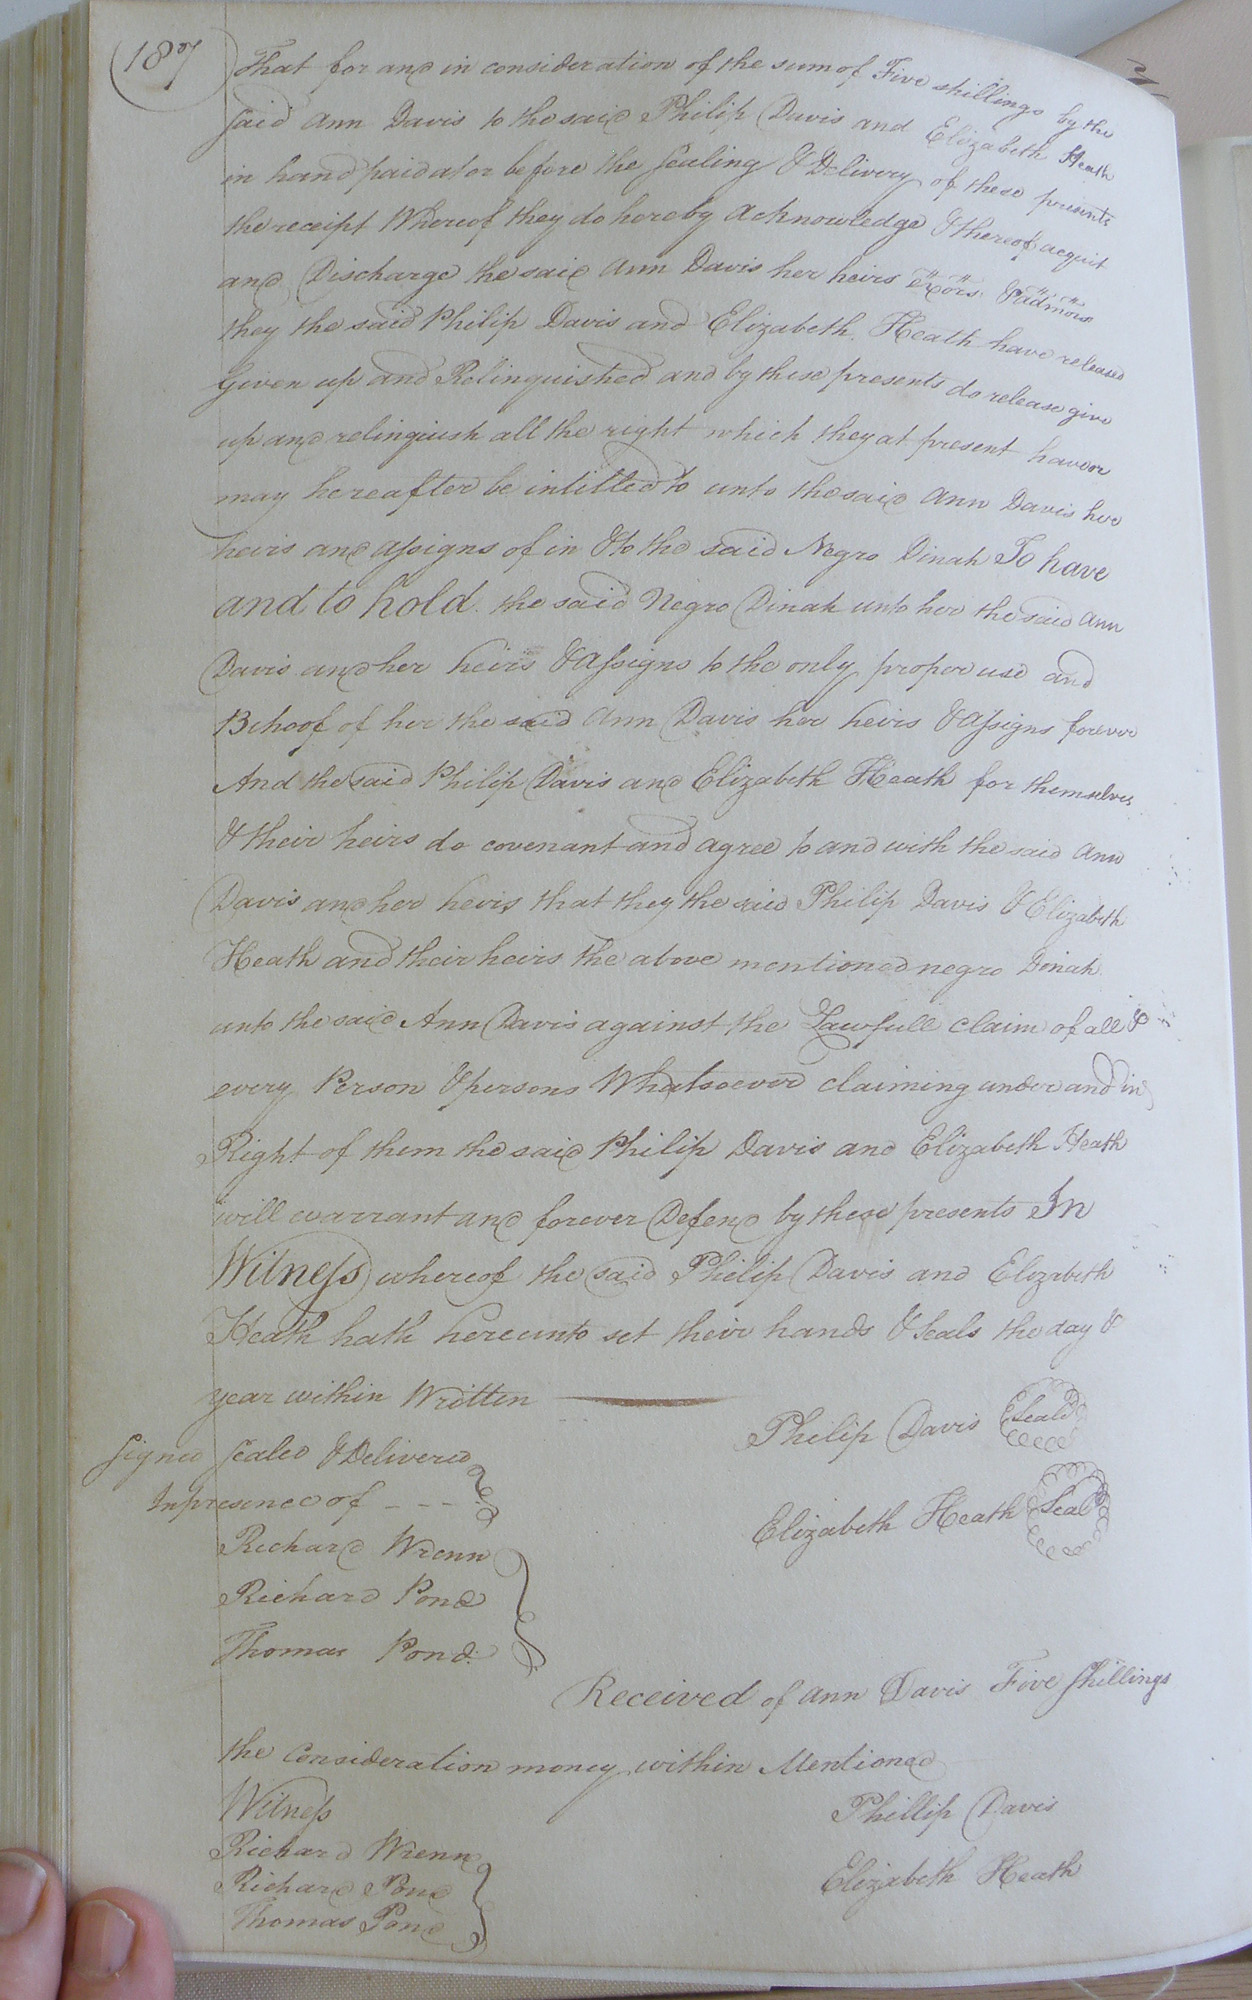 187
That for and in consideration of the sum of Five shillings by the
said Ann Davis to the said Philip Davis and Elizabeth Heath
in hand paid at or before the sealing & Delivery of these presents
the receipt Whereof they do hereby acknowledge & thereof acquit
and Discharge the said Ann Davis her heirs Exors & admors
they the said Philip Davis and Elizabeth Heath have released
Given up and Relinquished and by these presents do release give
up and relinquish all the right which they at present have or
may hereafter be intitled to unto the said Ann Davis her
heirs and assigns of in & to the said Negro Dinah To have
and to hold the said Negro Dinah unto her the said Ann
Davis and her heirs & Assigns to the only proper use and
Behoof of her the said Ann Davis her heirs & Assigns forever
And the said Philip Davis and Elizabeth Heath for themselves
& their heirs do covenant and agree to and with the said Ann
Davis and her heirs that they the said Philip Davis & Elizabeth
Heath and their heirs the above mentioned negro Dinah
unto the said Ann Davis against the Lawfull claim of all &
every Person & persons Whatsoever claiming under and in
Right of them the said Philip Davis and Elizabeth Heath
will warrant and forever Defend by these presents In
Witness whereof the said Philip Davis and Elizabeth
Heath hath hereunto set their hands & Seals the day &
year within Written
Philip Davis Seal
Signed Sealed & Delivered
In presence of - - -
Elizabeth Heath Seal
Richard Wrenn
Richard Pond
Thomas Pond
Received of Ann Davis Five Shillings
the Consideration money within Mentioned
Witness
Phillip Davis
Richard Wrenn
Richard Pond
Elizabeth Heath
Thomas Pond